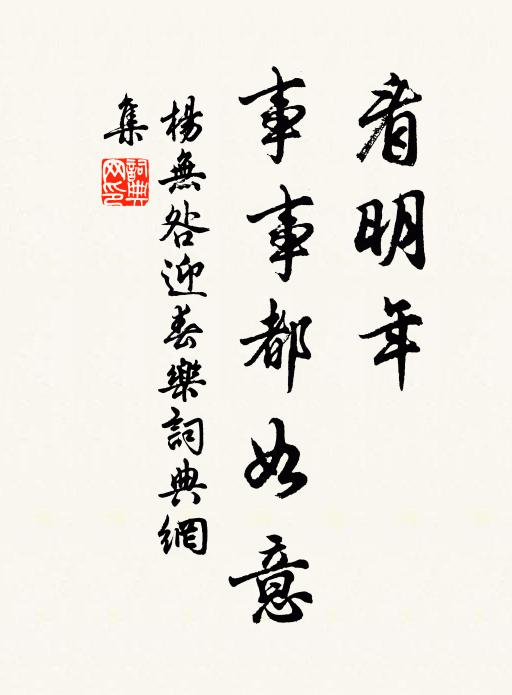 看明年
事事都如意
楊無咎迎春樂詞典網
集
詞典
网印